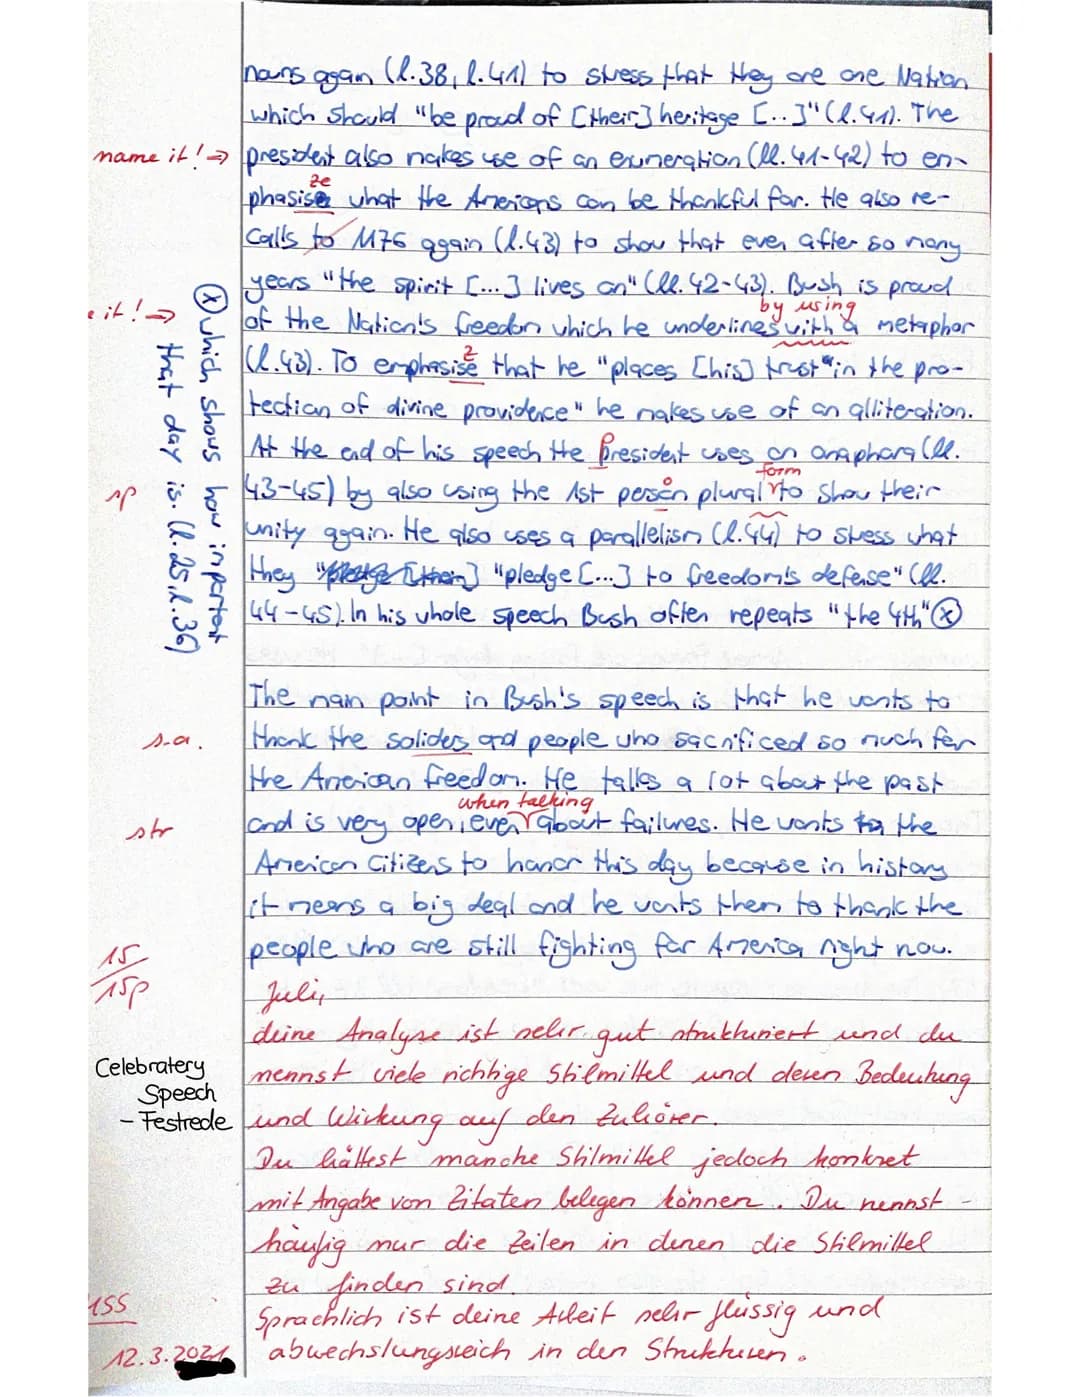 nouns again (l.38, l.41) to stress that they are one Nation
which should "be proud of [their] heritage [...]" (l.41). The
name it! => president also makes use of an enumeration (ll. 41-42) to em-
ze
phasise what the Americans can be thankful for. He also re-
calls to 1176 again (l.43) to show that even after so many
years "the spirit [...] lives on" (ll. 42-43). Bush is proud
by using
e it! => of the Nation's freedom which he underlines with a metaphor
z
(l.43). To emphasise that he "places [his] trust" in the pro-
tection of divine providence" he makes use of an alliteration.
At the end of his speech the President uses an anaphora (ll.
form
sp 43-45) by also using the 1st person plural to show their
unity again. He also uses a parallelism (l.44) to stress what
they "pledge [their] "pledge [...] to freedom's defense" (ll.
44-45). In his whole speech Bush often repeats "the 4th" ⓧ
ⓧ which shows how important
that day is. (l. 25, l. 36)
The main point in Bush's speech is that he wants to
s.a. thank the soliders and people who sacrificed so much for
the American freedom. He talks a lot about the past
when talking
str and is very open, even about failures. He wants to the
American Citizens to honor this day because in history
it means a big deal and he wants them to thank the
people who are still fighting for America right now.
15
15p
Juli,
deine Analyse ist sehr gut strukturiert und du
nennst viele richtige Stilmittel und deren Bedeutung
und Wirkung auf den Zuhörer.
Celebratery
Speech
- Festrede
Du hättest manche Stilmittel jedoch konkret
mit Angabe von Zitaten belegen können. Du nennst
häufig nur die Zeilen in denen die Stilmittel
zu finden sind.
Sprachlich ist deine Arbeit sehr flüssig und
abwechslungsreich in den Strukturen.
1SS
12.3.2021